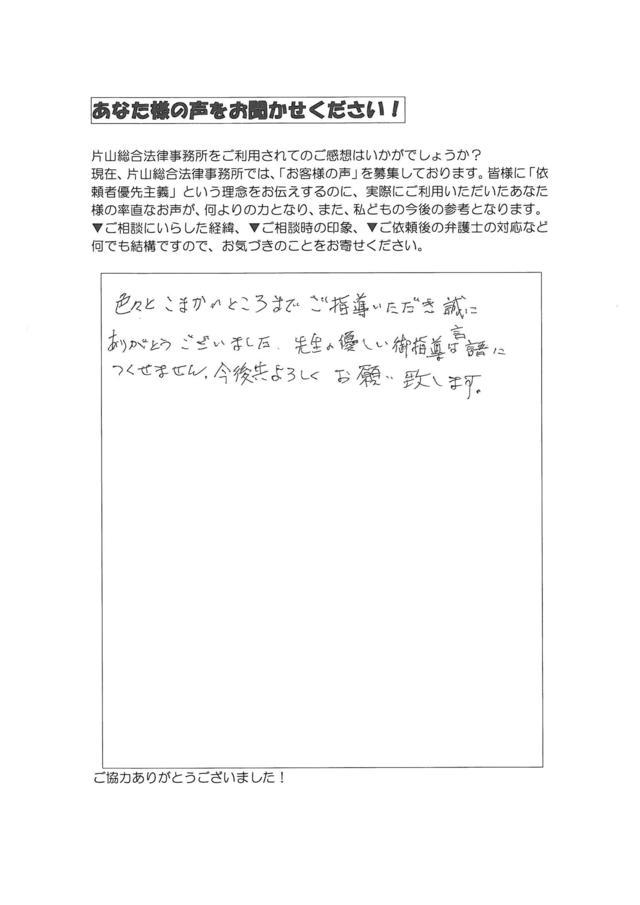 あなた様の声をお聞かせください！
片山総合法律事務所をご利用されてのご感想はいかがでしょうか？
現在、片山総合法律事務所では、「お客様の声」を募集しております。皆様に「依
頼者優先主義」という理念をお伝えするのに、実際にご利用いただいたあなた
様の率直なお声が、何よりの力となり、また、私どもの今後の参考となります。
▼ご相談にいらした経緯、▼ご相談時の印象、▼ご依頼後の弁護士の対応など
何でも結構ですので、お気づきのことをお寄せください。
色々とこまかいところまでご指導いただき誠に
ありがとうございました。先生の優しい御指導は言語に
つくせません。今後共よろしくお願い致します。
ご協力ありがとうございました！